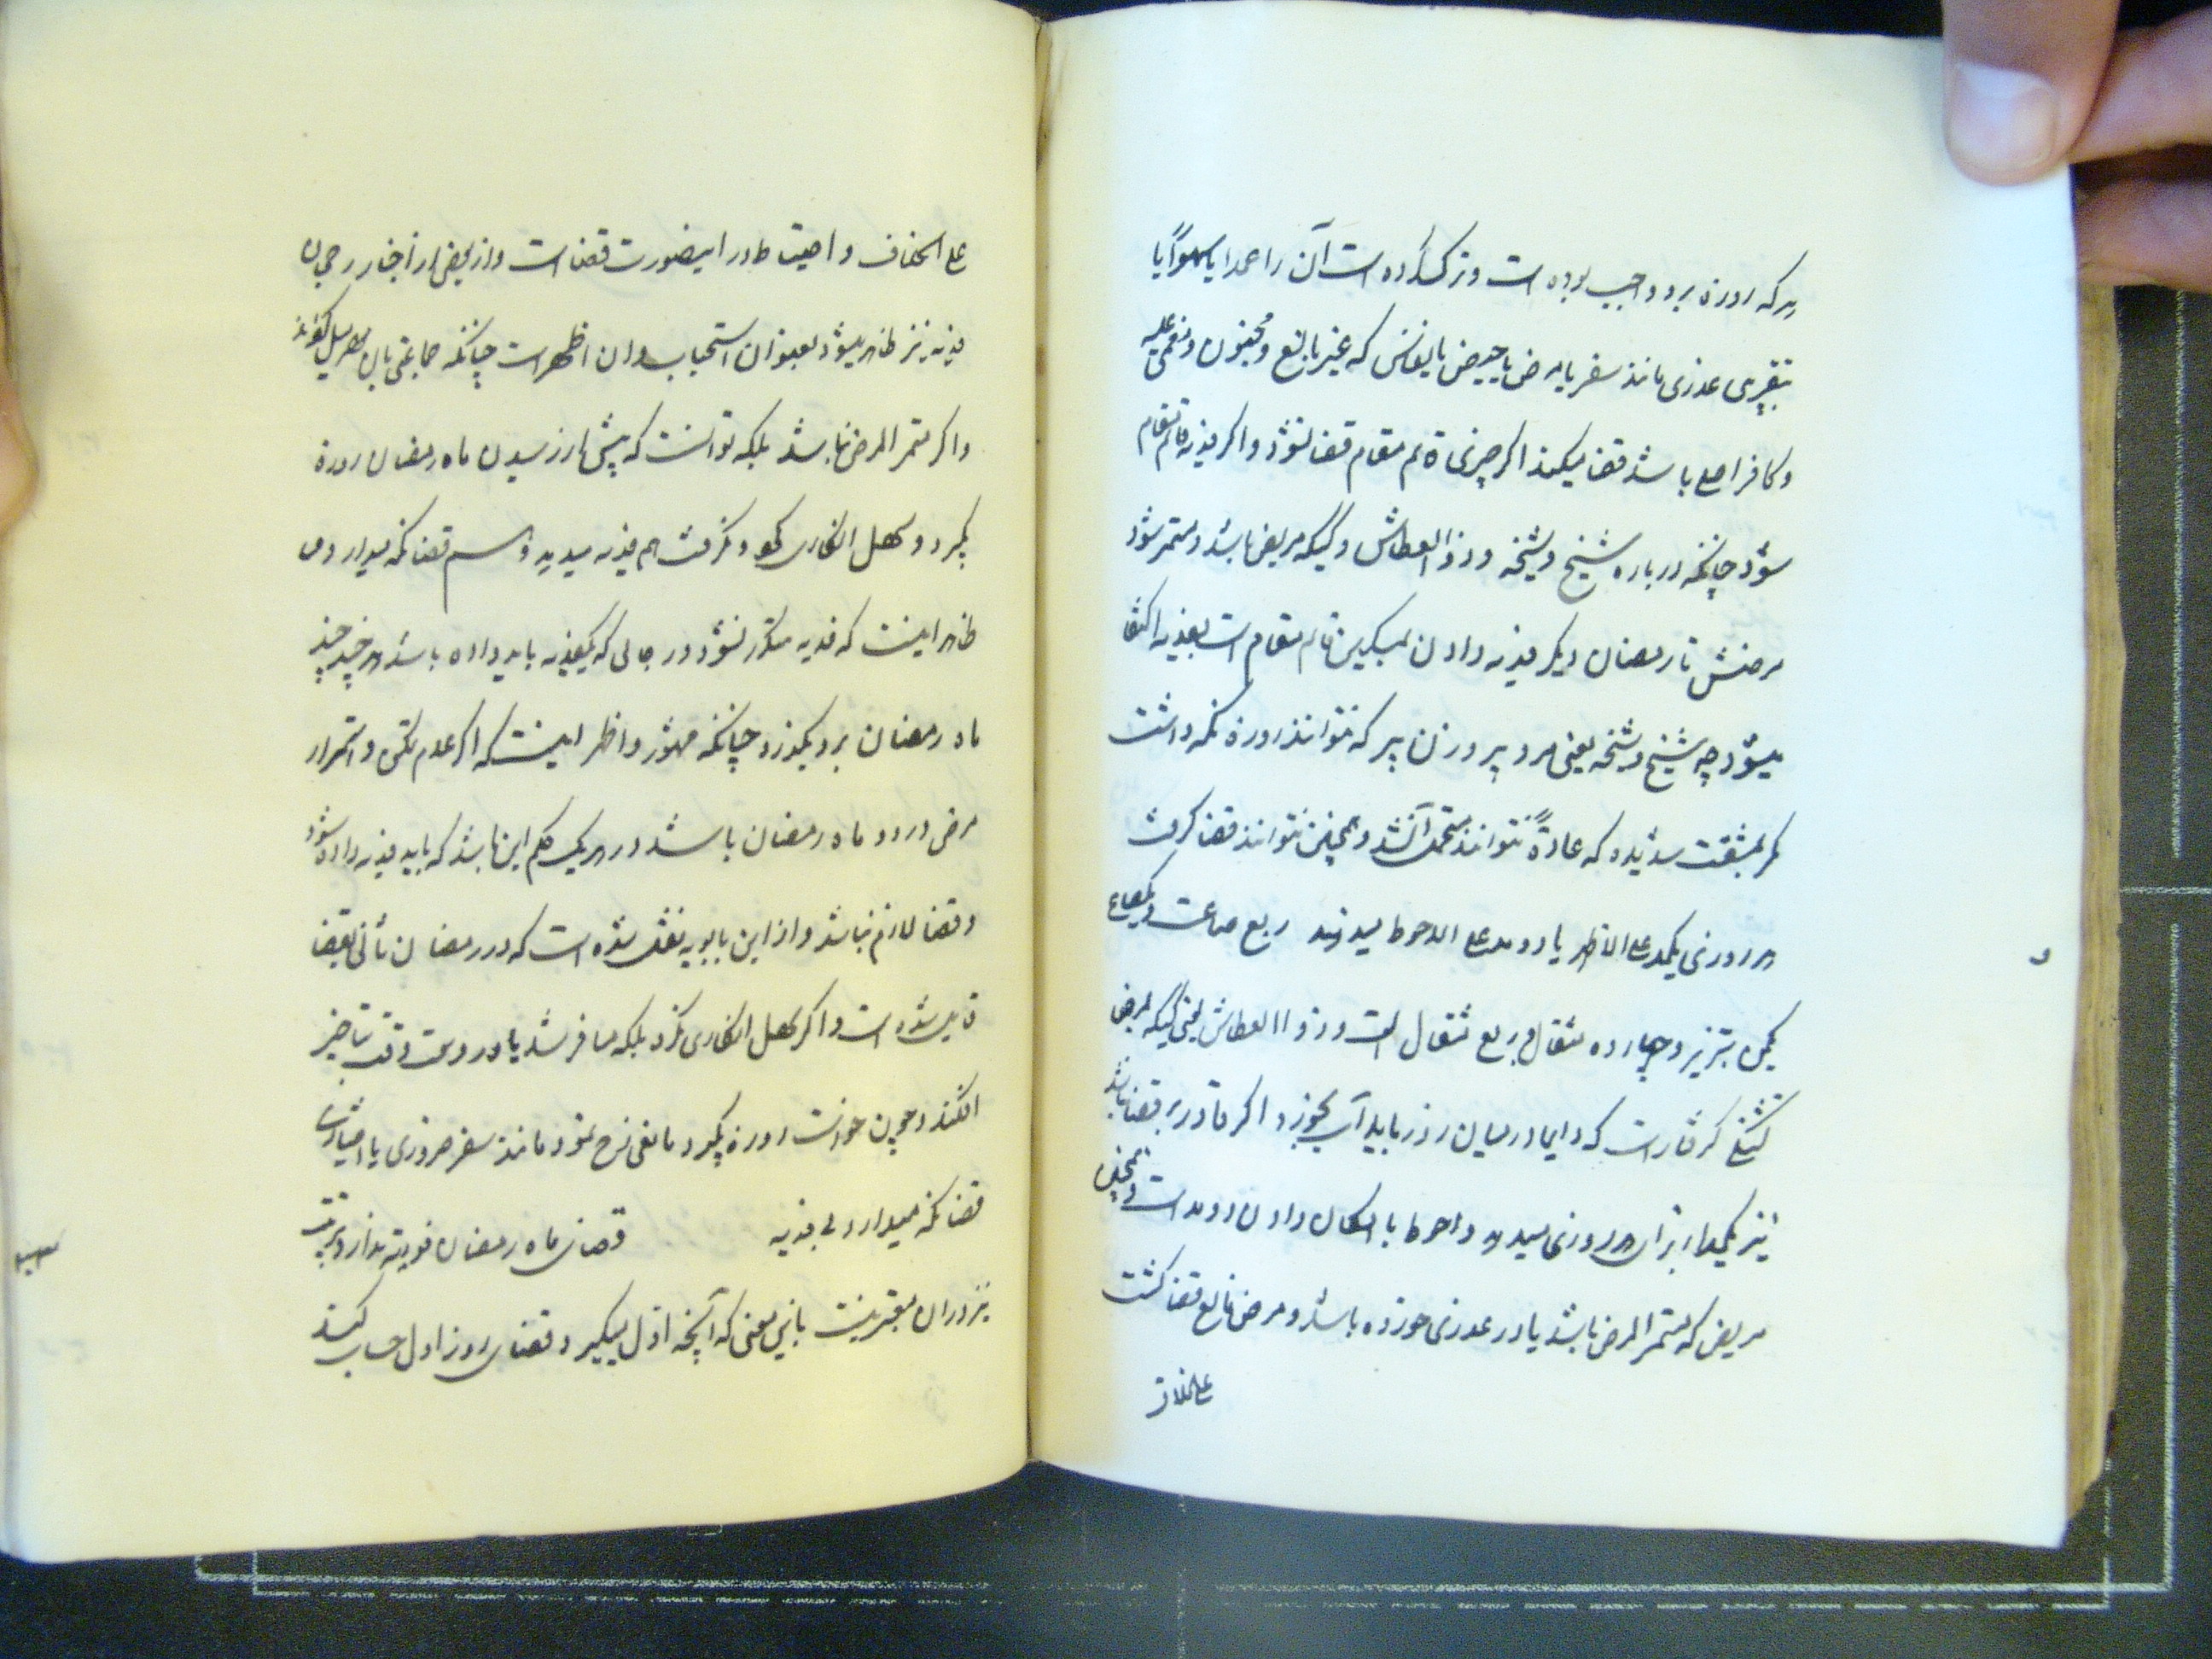 هر که روزه برو واجب بوده است و ترک کرده است آن را عمدا یا سهواً یا
بتقریب عذری مانند سفر یا مرض یا حیض یا نفاس که غیر بالغ و مجنون و مغمی علیه
و کافر اصلی باشد قضا میکند اگر چیزی قایم مقام قضا نشود و اگر فدیه قایم مقام
شود چنانکه درباره شیخ و شیخه و ذو العطاش و کسیکه مریض باشد و مستمر شود
مرضش تا رمضان دیگر فدیه دادن بمسکین قایم مقام است بفدیه اکتفا
میشود چه شیخ و شیخه یعنی مرد پیر و زن پیر که نتوانند روزه نگه داشت
مگر بمشقت شدیده که عادةً نتوانند متحمل آن شد و همچنین نتوانند قضا گرفت
هر روزی یکمد علی الاظهر یا دو مد علی الاحوط میدهند ربع صاعست و یکصاع
یکمن تبریز و چهارده مثقال و ربع مثقال است و ذو العطاش یعنی کسیکه بمرض
تشنگی گرفتارست که دایما در میان روز باید آب بخورد اگر قادر بر قضا نباشد
نیز یکمد از برای هر روزی میدهد و احوط با امکان دادن دو مد است و همچنین
مریض که مستمر المرض باشد یا در عذری خورده باشد و مرض مانع قضا گشت
علی الخلاف
علی الخلاف و احتیاط در اینصورت قضا است و از بعضی از اخبار رجحان
فدیه نیز ظاهر میشود بعنوان استحباب و آن اظهر است چنانکه جماعتی بآن قایل گفته‌اند
و اگر مستمر المرض نباشد بلکه توانست که پیش از رسیدن ماه رمضان روزه
بگیرد و سهل انگاری کرد و نگرفت هم فدیه میدهد و هم قضا نگه میدارد و
ظاهر اینست که فدیه مکرر نشود در جائی که یکفدیه باید داده باشد هر چند چند
ماه رمضان برو بگذرد چنانکه مشهور و اظهر اینست که اگر عدم تمکن و استمرار
مرض در دو ماه رمضان باشد در هر یک حکم این باشد که باید فدیه داده شود
و قضا لازم نباشد و از ابن بابویه نقل شده است که در رمضان ثانی بقضا
قایل شده است و اگر سهل انگاری نکرد بلکه مسافر شد یا در وسعت وقت تاخیر
افکند و چون خواست روزه بگیرد مانعی رخ نمود مانند سفر ضروری یا
قضا نگه میدارد بی فدیه قضای ماه رمضان فوریت ندارد و ترتیب
نیز در آن معتبر نیست باین معنی که آنچه اول میگیرد قضای روز اول حساب کند